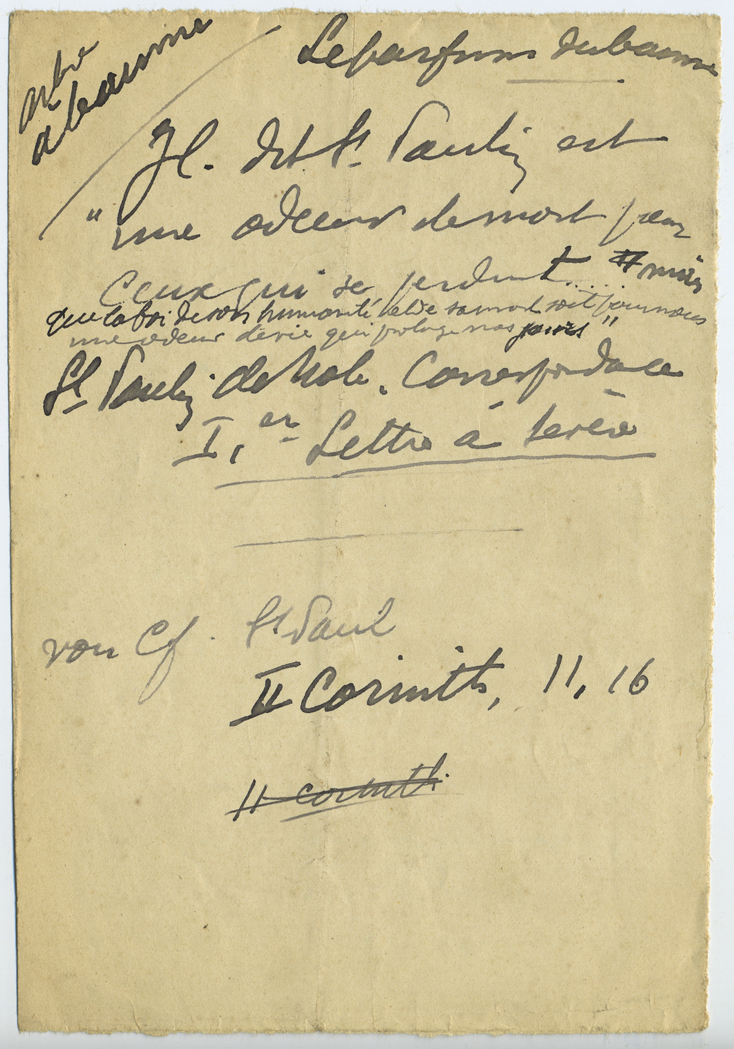 arbre
à baume
Le parfum du baume
Il. dit St. Paulin est
"une odeur de mort pour
ceux qui se perdent.... # mais
que la foi de son humanité et de sa mort soit pour nous
une odeur de vie qui prolonge nos jours"
St Paulin de Nole. Correspondance
I, er Lettre à Sévère
voir Cf. St Paul
II Corinth, 11, 16
11 Corinth.